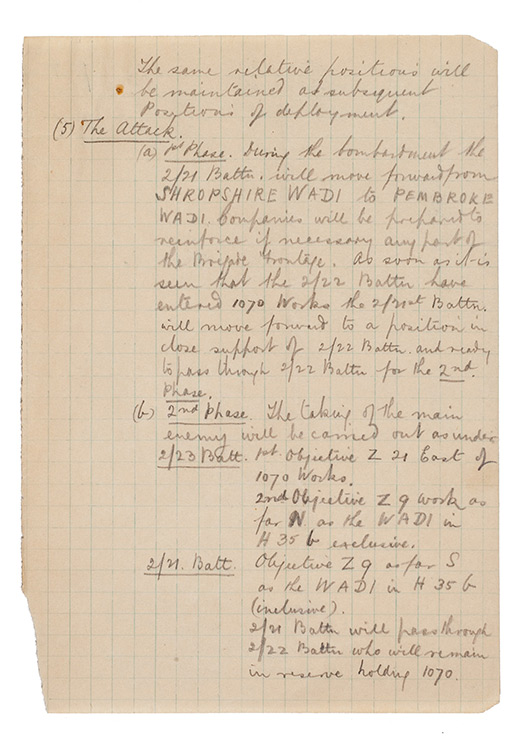 The same relative positions will
be maintained as subsequent
Positions of deployment.
(5) The Attack.
(a) 1st Phase. During the bombardment the
2/21 Battn. will move forward from
SHROPSHIRE WADI to PEMBROKE
WADI. Companies will be prepared to
reinforce if necessary any part of
the Brigade frontage. As soon as it is
seen that the 2/22 Battn have
entered 1070 Works the 2/21st Battn.
will move forward to a position in
close support of 2/22 Battn. and ready
to pass through 2/22 Battn for the 2nd.
Phase.
(b) 2nd Phase. The taking of the main
enemy will be carried out as under
2/23 Batt. 1st. Objective Z 21 East of
1070 Works.
2nd Objective Z 9 work as
far N. as the WADI in
H 35 b exclusive.
2/21. Batt. Objective Z 9 as far S
as the WADI in H 35 b
(inclusive).
2/21 Battn will pass through
2/22 Battn who will remain
in reserve holding 1070.